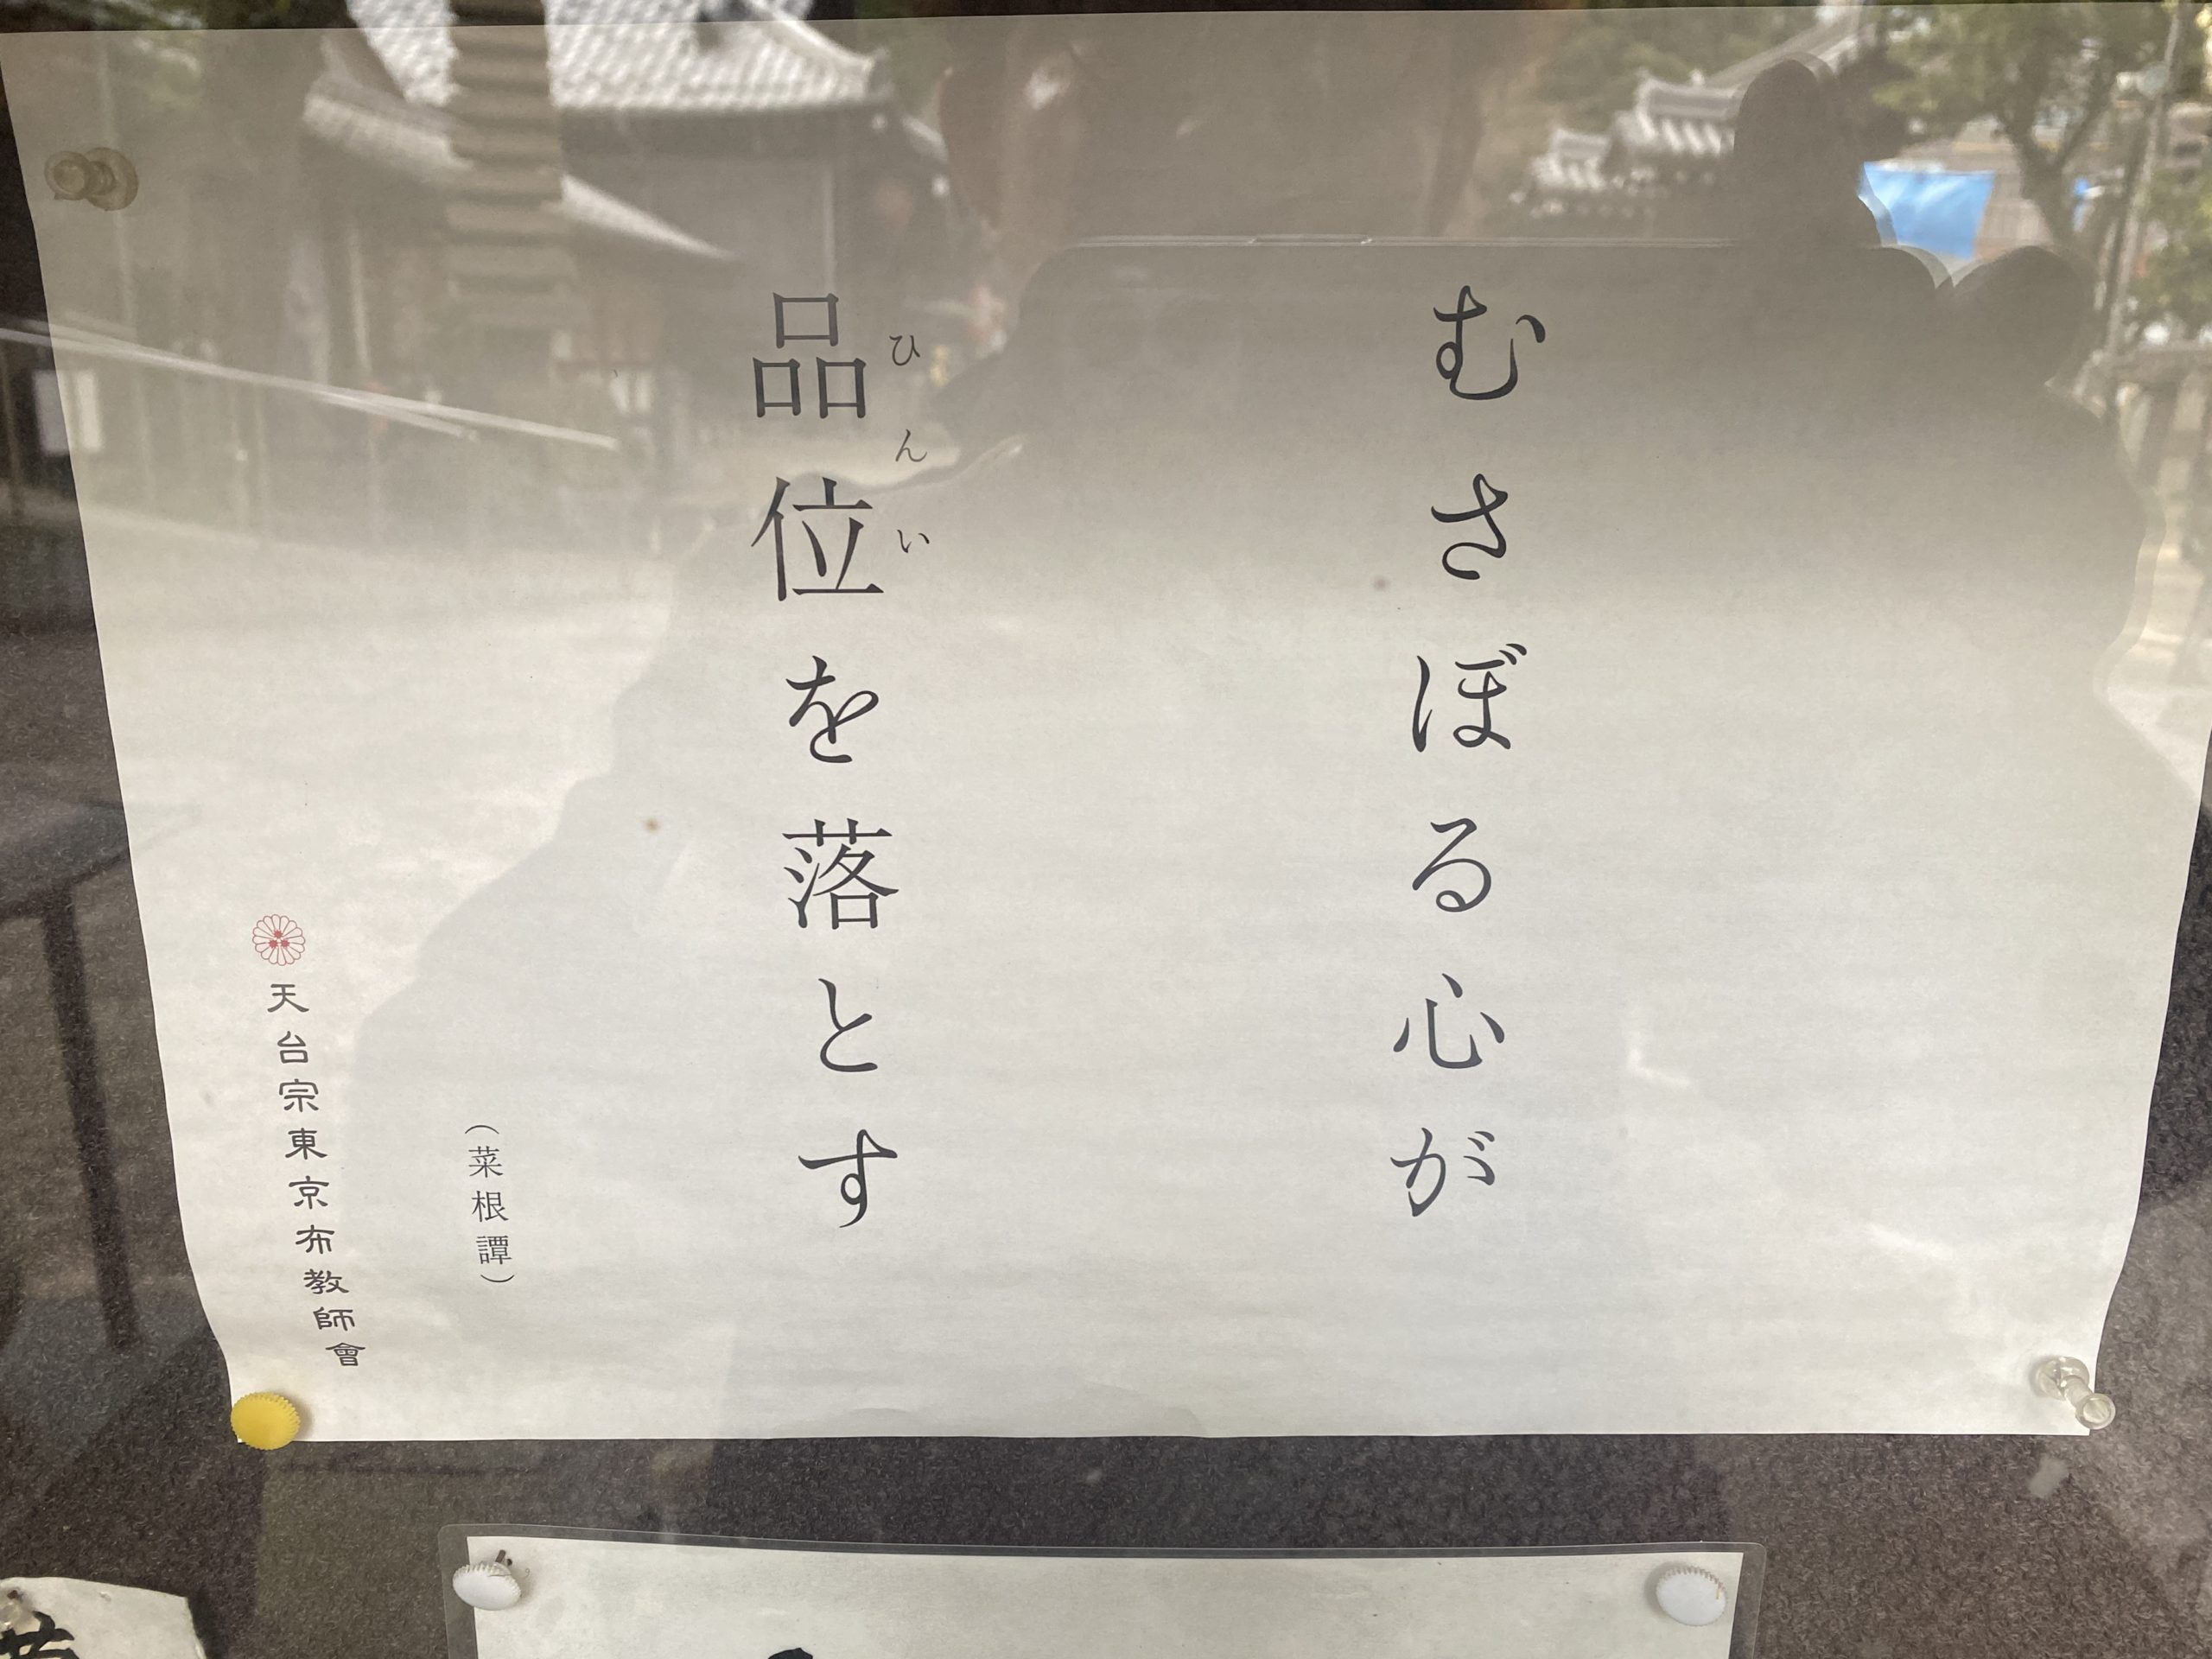 むさぼる心が
品位を落とす
ひんい
（菜根譚）
天台宗東京布教師會